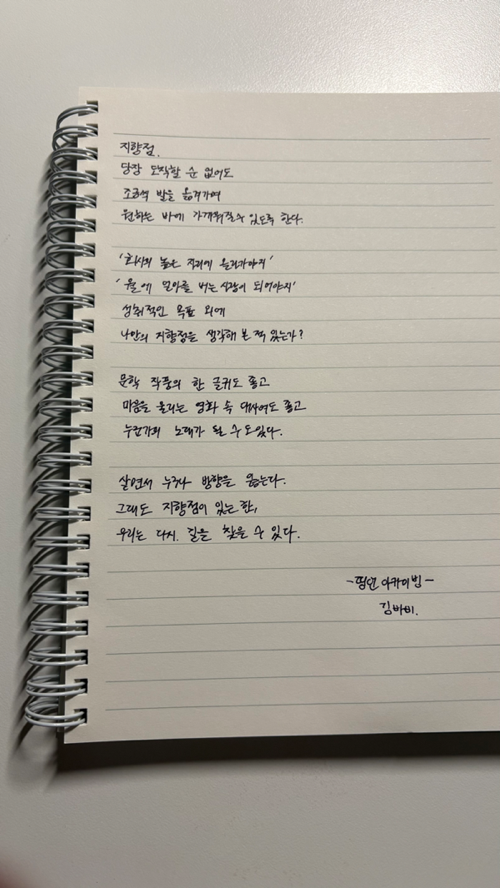 지향점.
당장 도착할 순 없어도
조금씩 발을 옮겨가며
원하는 바에 가까워질 수 있도록 한다.
'회사의 높은 자리에 올라가야지'
'월에 얼마를 버는 사람이 되어야지'
성취적인 목표 외에
나만의 지향점을 생각해 본 적 있는가?
문학 작품의 한 글귀도 좋고
마음을 울리는 영화 속 대사여도 좋고
누군가의 노래가 될 수도 있다.
살면서 누구나 방향을 잃는다.
그래도 지향점이 있는 한,
우리는 다시. 길을 찾을 수 있다.
-필인 아카이빙-
김바비.